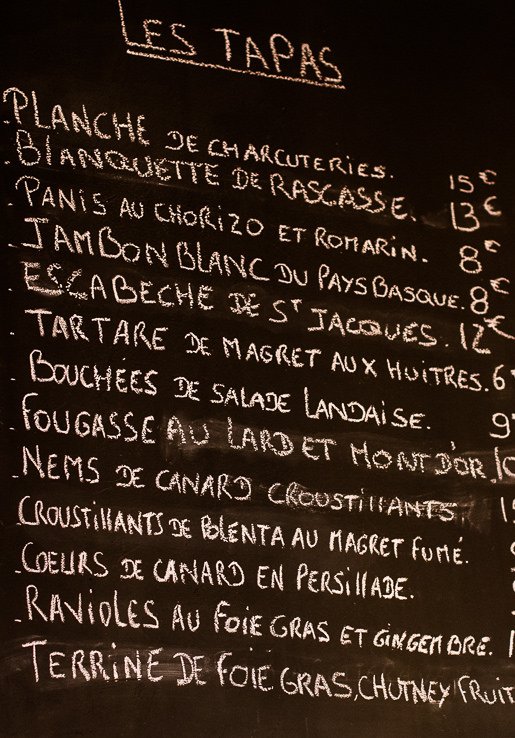 LES TAPAS
. PLANCHE DE CHARCUTERIES. 15€
. BLANQUETTE DE RASCASSE. 13€
. PANIS AU CHORIZO ET ROMARIN. 8€
. JAMBON BLANC DU PAYS BASQUE. 8€
. ESCABECHE DE ST JACQUES. 12€
. TARTARE DE MAGRET AUX HUITRES. 6
. BOUCHÉES DE SALADE LANDAISE. 9
. FOUGASSE AU LARD ET MONT D'OR. 10
. NEMS DE CANARD CROUSTILLANTS.
. CROUSTILLANTS DE POLENTA AU MAGRET FUMÉ.
. COEURS DE CANARD EN PERSILLADE.
. RAVIOLES AU FOIE GRAS ET GINGEMBRE.
. TERRINE DE FOIE GRAS, CHUTNEY FRUIT